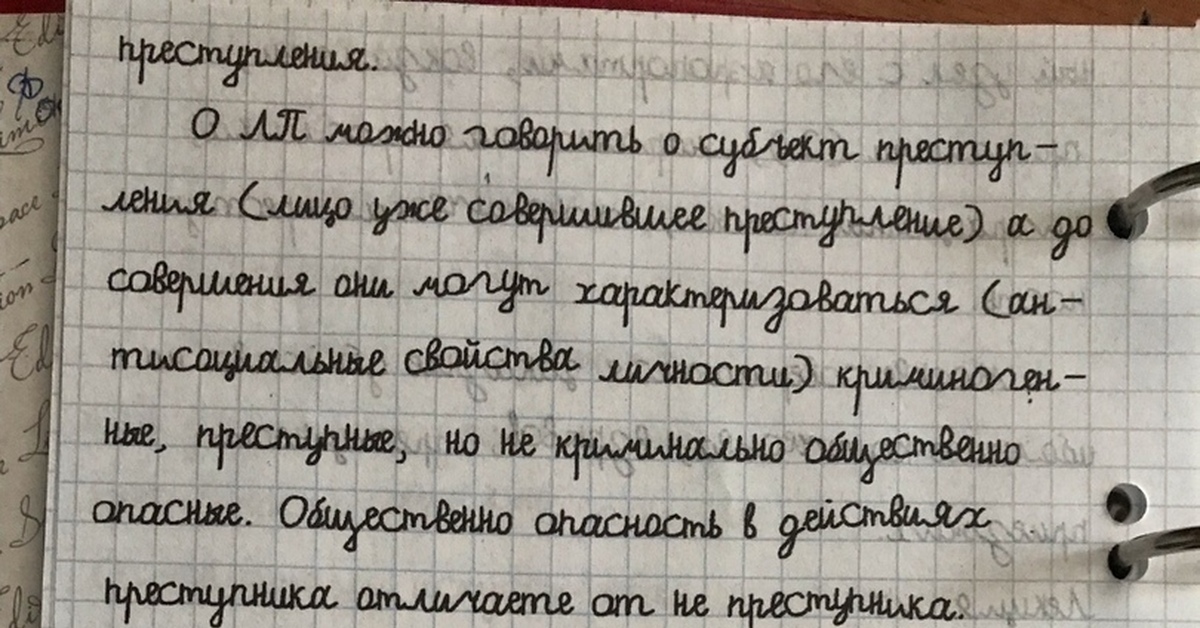 преступления.
О ЛП можно говорить о субъект преступ-
ления (лицо уже совершившее преступление) а до
совершения они могут характеризоваться (ан-
тисоциальные свойства личности) криминоген-
ные, преступные, но не криминально общественно
опасные. Общественно опасность в действиях
преступника отличаете от не преступника.